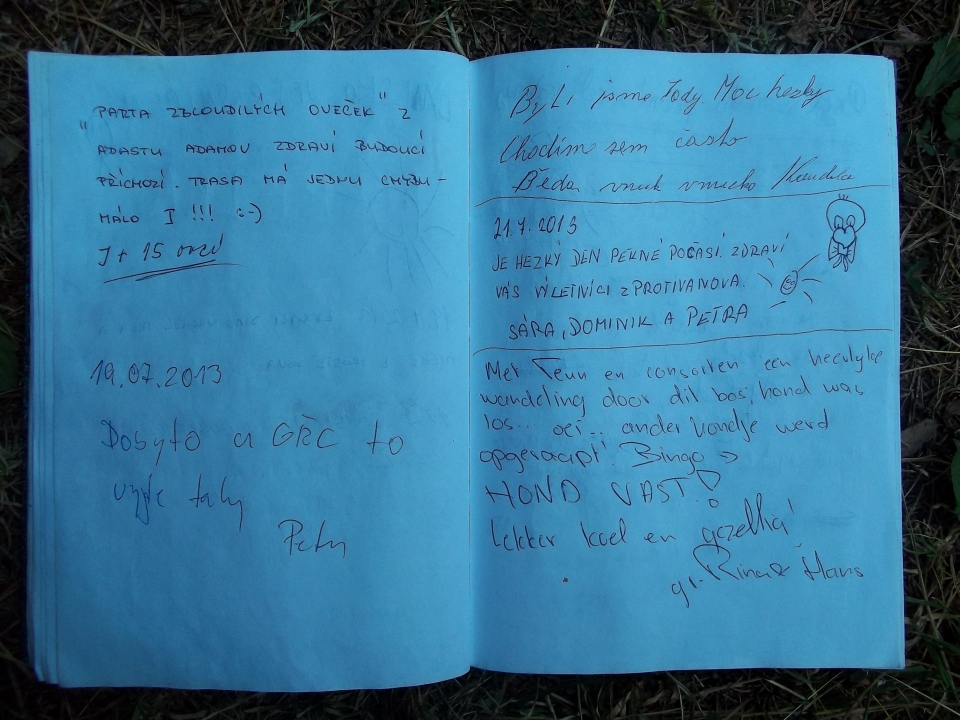 "PARTA ZBLOUDILÝCH OVEČEK" Z
ADASTU ADAMOV ZDRAVÍ BUDOUCÍ
PŘÍCHOZÍ. TRASA MÁ JEDNU CHYBU -
MÁLO I !!! :-)
J + 15 ovcí
19.07.2013
Dosyto a GŘC to
taky
Petr
Byli jsme tady. Moc hezky
Chodíme sem často
Běda vnuk
21.7.2013
JE HEZKÝ DEN PĚKNÉ POČASÍ. ZDRAVÍ
VÁS VÝLETNÍCI Z PROTIVANOVA.
SÁRA, DOMINIK A PETRA
Met Teun en consorten een heerlijke
wandeling door dit bos; hond was
los... oei... ander hondje werd
opgeraapt! Bingo →
HOND VAST!
Lekker koel en gezellig!
gr. Rina & Hans